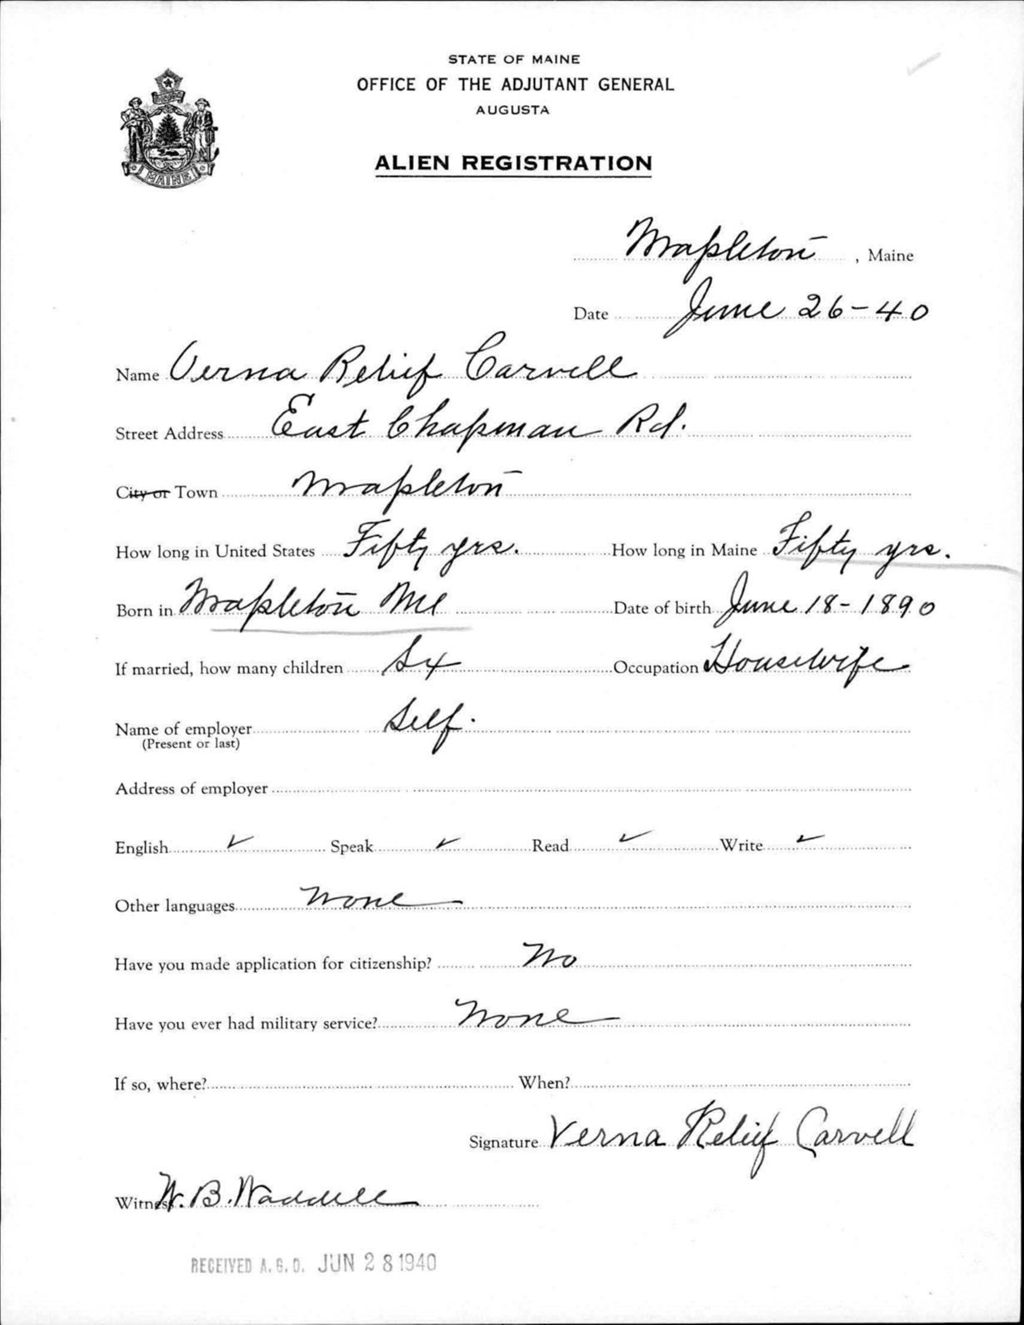 STATE OF MAINE
OFFICE OF THE ADJUTANT GENERAL
AUGUSTA
ALIEN REGISTRATION
MAINE
Mapleton, Maine
Date June 26-40
Name Verna Relief Carvell
Street Address East Chapman Rd.
City or Town Mapleton
How long in United States Fifty yrs. How long in Maine Fifty yrs.
Born in Mapleton Me Date of birth June 18-1890
If married, how many children Six Occupation Housewife
Name of employer Self.
(Present or last)
Address of employer
English ✓ Speak ✓ Read ✓ Write ✓
Other languages None
Have you made application for citizenship? No
Have you ever had military service? None
If so, where? When?
Signature Verna Relief Carvell
Witness W. B. Waddell
RECEIVED A.G.O. JUN 28 1940